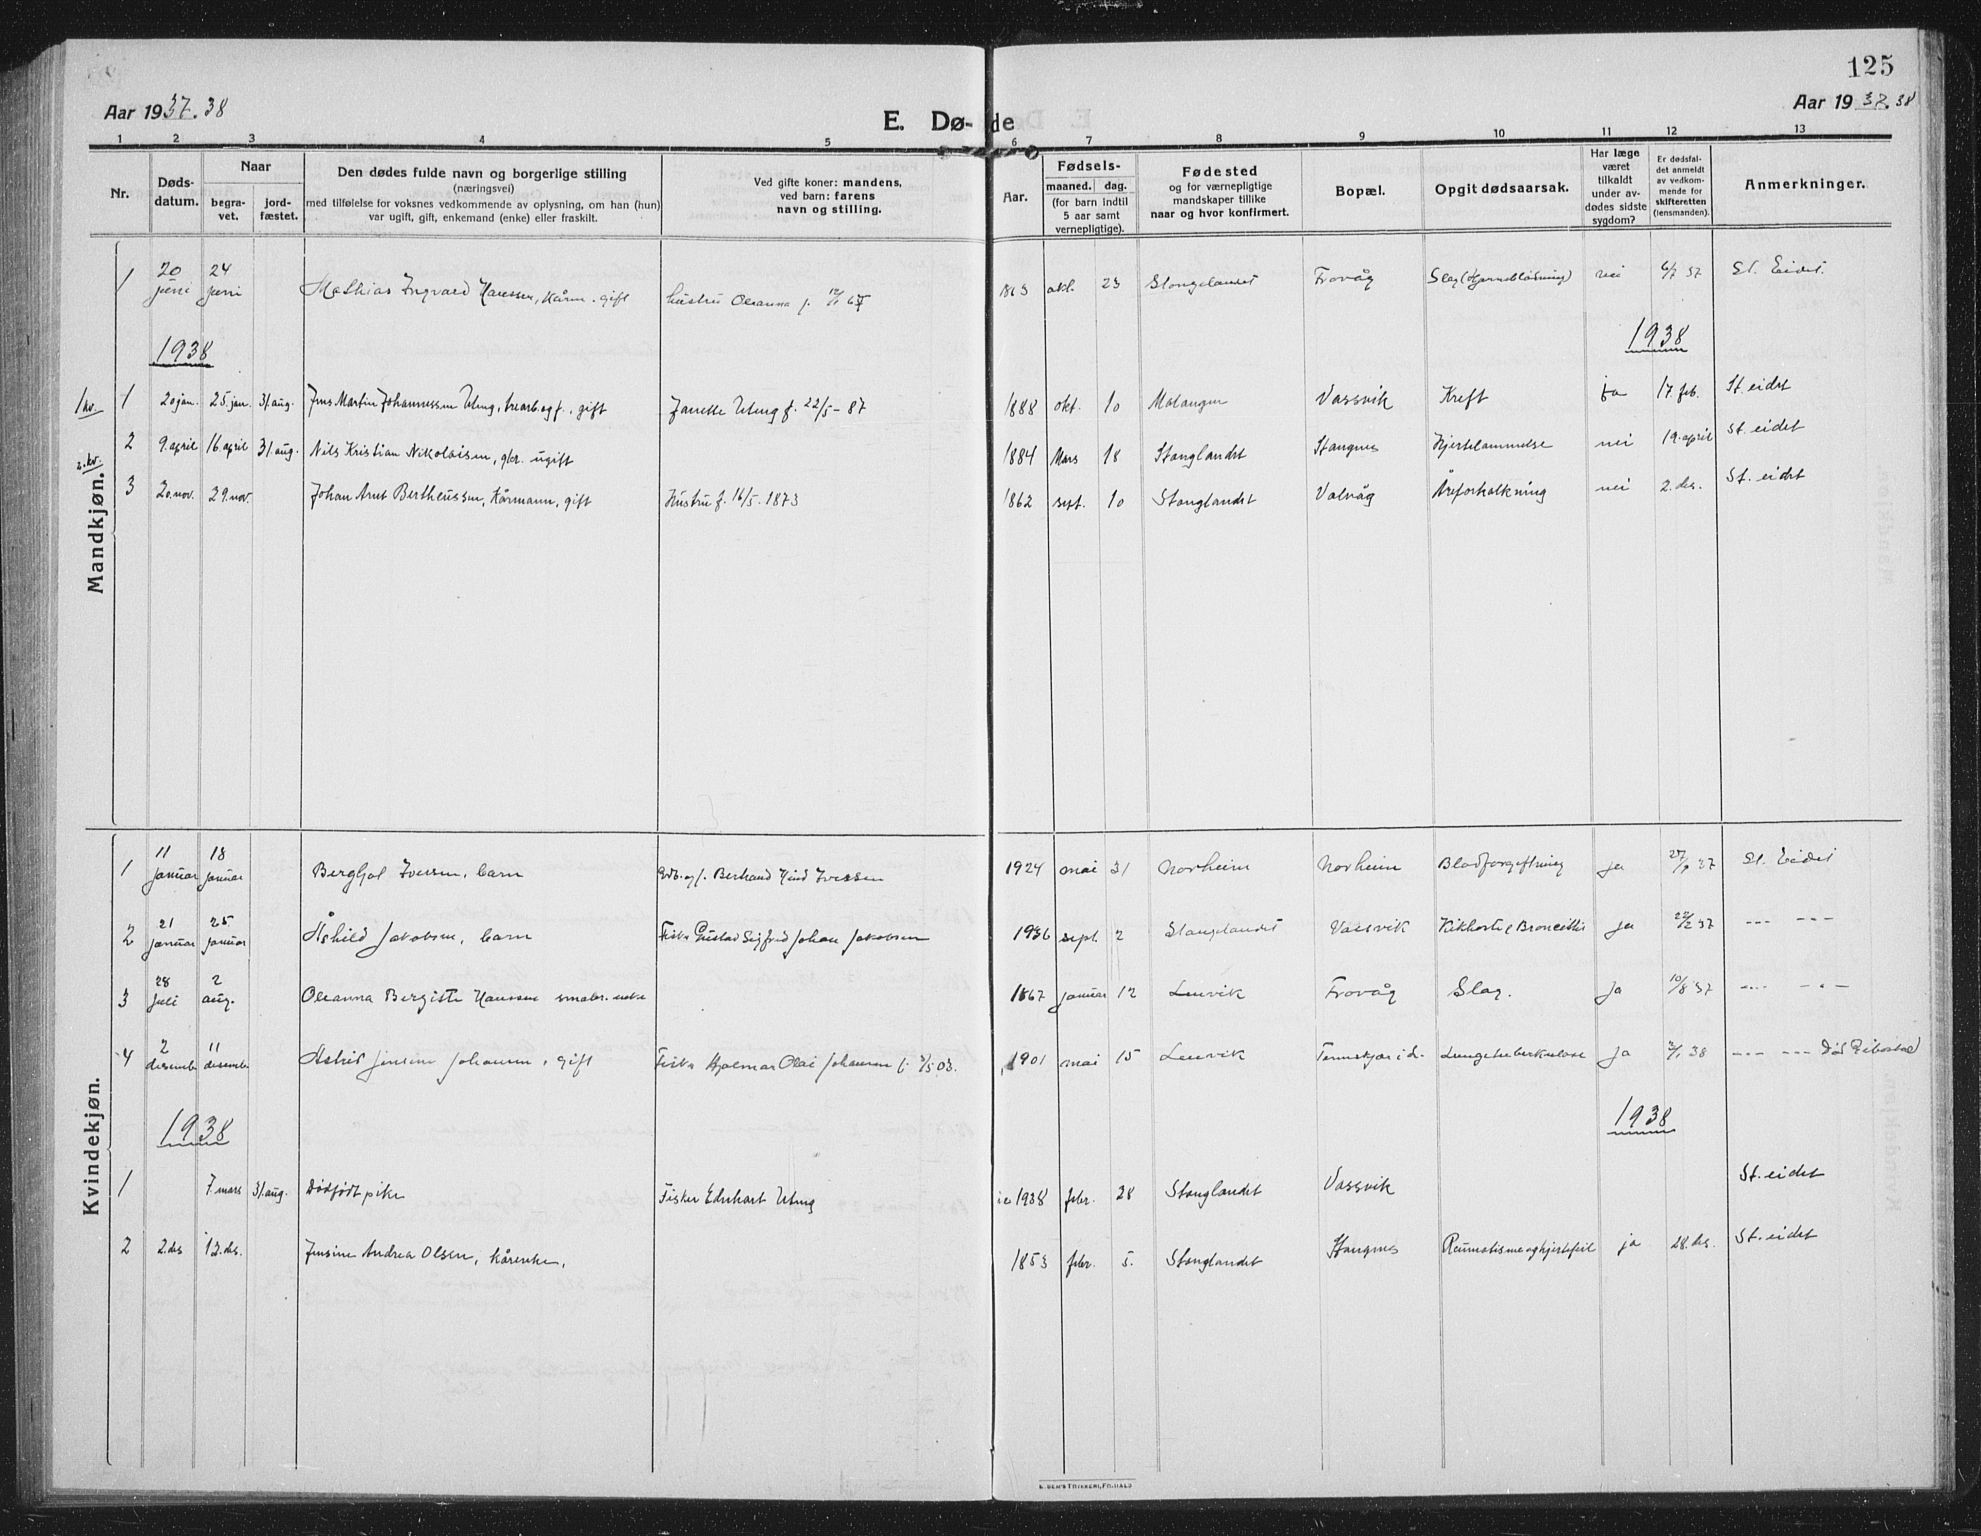 125
Aar 1937.38
E. Dø- de
Aar 1937.38
1 2 3 4 5 6 7 8 9 10 11 12 13
Nr.
Døds-
datum.
Naar
begra-
vet.
jord-
fæstet.
Den dødes fulde navn og borgerlige stilling
(næringsvei)
med tilføielse for voksnes vedkommende av oplysning, om han (hun)
var ugift, gift, enkemand (enke) eller fraskilt.
Ved gifte koner: mandens,
ved barn: farens
navn og stilling.
Aar.
Fødsels-
maaned. dag.
(for barn indtil
5 aar samt
vernepligtige).
Fødested
og for værnepligtige
mandskaper tillike
naar og hvor konfirmert.
Bopæl.
Opgit dødsaarsak.
Har læge
været
tilkaldt
under av-
dødes sidste
sygdom?
Er dødsfal-
det anmeldt
av vedkom-
mende for
skifteretten
(lensmanden).
Anmerkninger.
Mandkjøn.
1 20 juni 24 juni Mathias Ingvard Hanssen, kårm. gift hustru Oleanna f. 12/1 67 1863 okt. 23 Stonglandet Frovåg Slag (Hjerneblødning) nei 6/7 37 St. Eidet.
1938 1938
1 kv. 1 20 jan. 25. jan. 31. aug. Jens Martin Johannessen Uteng, trearb. og f., gift Janette Uteng f. 22/5-87 1888 okt. 10 Malangen Vassvik Kreft ja 17. feb. St. eidet
2. kv. 2 9. april 16. april 31. aug. Nils Kristian Nikolaisen, gbr. ugift 1884 Mars 18 Stonglandet Stangnes Hjertelammelse nei 19. april St. eidet
3 20. nov. 29. nov. Johan Arnt Bertheussen, Kårmann, gift Hustru f. 16/5. 1873 1862 sept. 10 Stonglandet Valvåg Åreforkalkning nei 2. des. St. eidet
Kvindekjøn.
1 11 januar 18 januar Bergljot Iversen, barn Gdb. og f. Bertrand Hind Iverssen 1924 mai 31 Norheim Norheim Blodforgiftning ja 37 St. Eidet
2 21 januar 25 januar Åshild Jakobsen, barn Fisker Gustav Sigfred Johan Jakobsen 1936 sept. 2 Stonglandet Vassvik Kikhoste & Broncittis ja 22/2 37 --- ---
3 28 juli 2 aug. Oleanna Bergitte Hanssen småbr. enke 1867 januar 12 Lenvik Frovåg Slag. ja 10/8 37 --- ---
4 2 desember 11 desember Astrid Jensine Johansen, gift Fisker Hjalmar Olai Johansen f. 03. 1901 mai 15 Lenvik Tennskjær i d. Lungetuberkulose ja 38 --- --- Død Gibostad
1938 1938
1 7. mars 31. aug. Dødfødt pike Fisker Edvart Uteng 1938 febr. 28 Stonglandet Vassvik St. eidet
2 2. des 13. des. Jensine Andrea Olsen, kårenke, 1853 febr. 5. Stonglandet Stangnes Reumatisme og hjertefeil ja 28. des. St. eidet